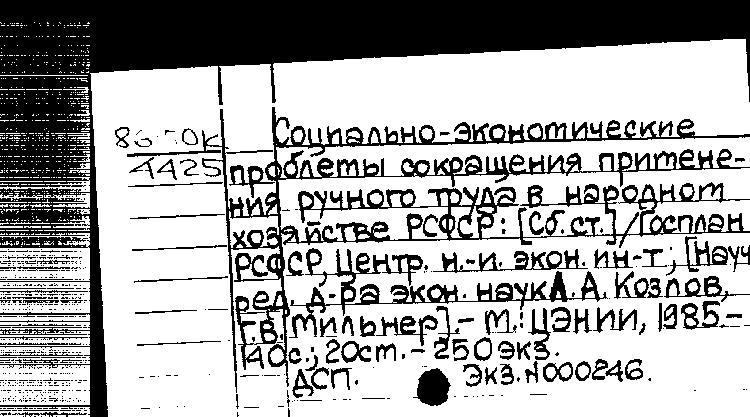 Социально-экономические
4425 проблемы сокращения примене-
ния ручного труда в народном
хозяйстве РСФСР: [Сб.ст.]/Госплан
РСФСР, Центр. н.-и. экон. ин-т; [Науч
ред. д-ра экон. наук А.А. Козлов,
Г.В. Мильнер].- М.: ЦЭНИИ, 1985.-
140с.; 20см.- 250 экз.
ДСП. Экз.N000246.